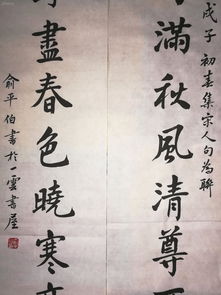 戊子 初春集宋人句為聯
滿秋風清尊
盡春色曉寒
俞平伯書於一雲書屋